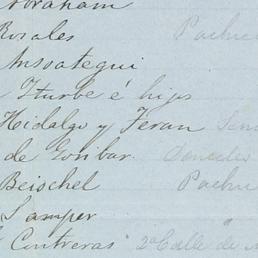 Abraham
Rosales Pachuc
Ansoategui
Iturbe é hijos
Hidalgo y Teran
de Goribar Donceles
Beischel Pachuc
Samper
Contreras 2a Calle de